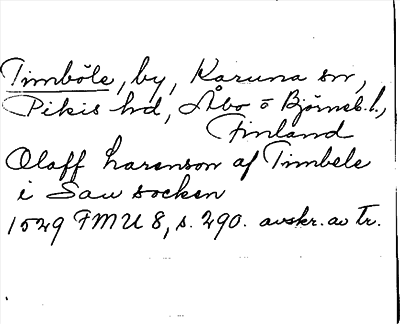 Timböle, by, Karuna sn,
Pikis hd, Åbo o Björneb. l.,
Finland
Olaff Larenson af Timbele
i Saw socken
1529 FMU 8, s. 290. avskr. av Tr.